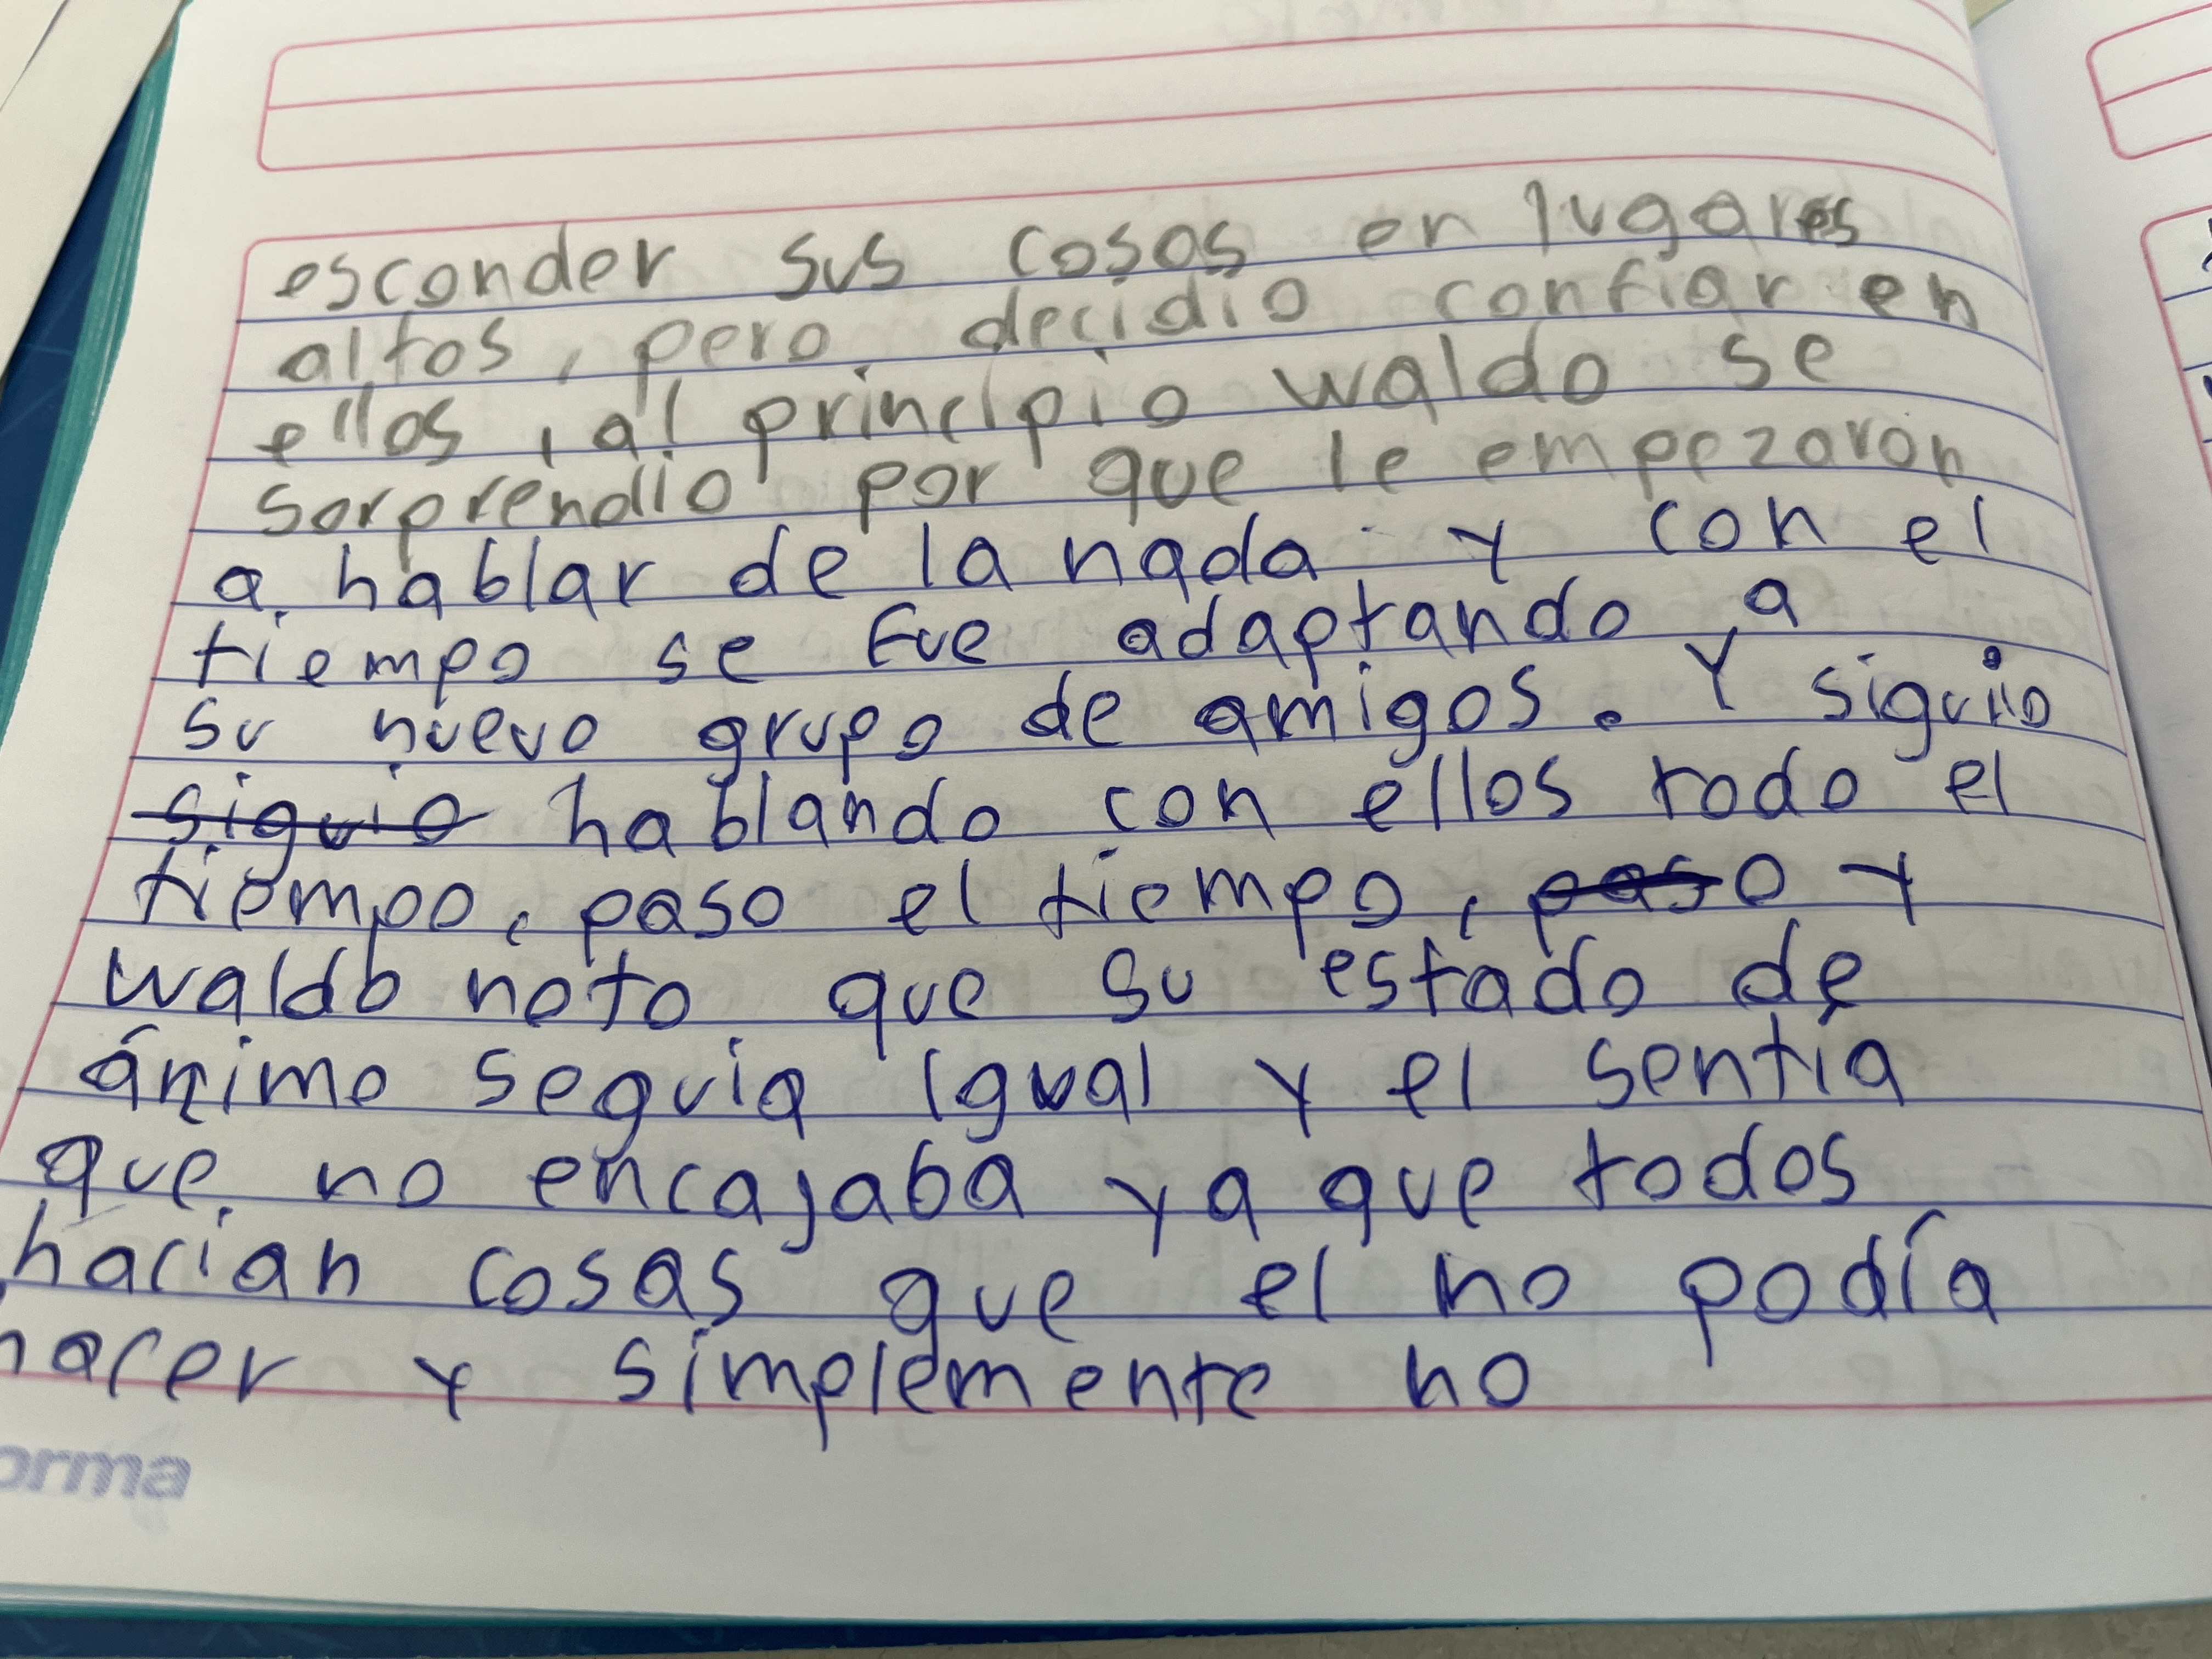 esconder sus cosas en lugares
altos, pero decidio confiar en
ellos, al principio waldo se
sorprendio por que le empezaron
a hablar de la nada y con el
tiempo se fue adaptando a
su nuevo grupo de amigos. Y siguio
siguio hablando con ellos todo el
tiempo, paso el tiempo, paso y
waldo noto que su estado de
ánimo seguia igual y el sentia
que no encajaba ya que todos
hacian cosas que el no podía
hacer y simplemente no
orma